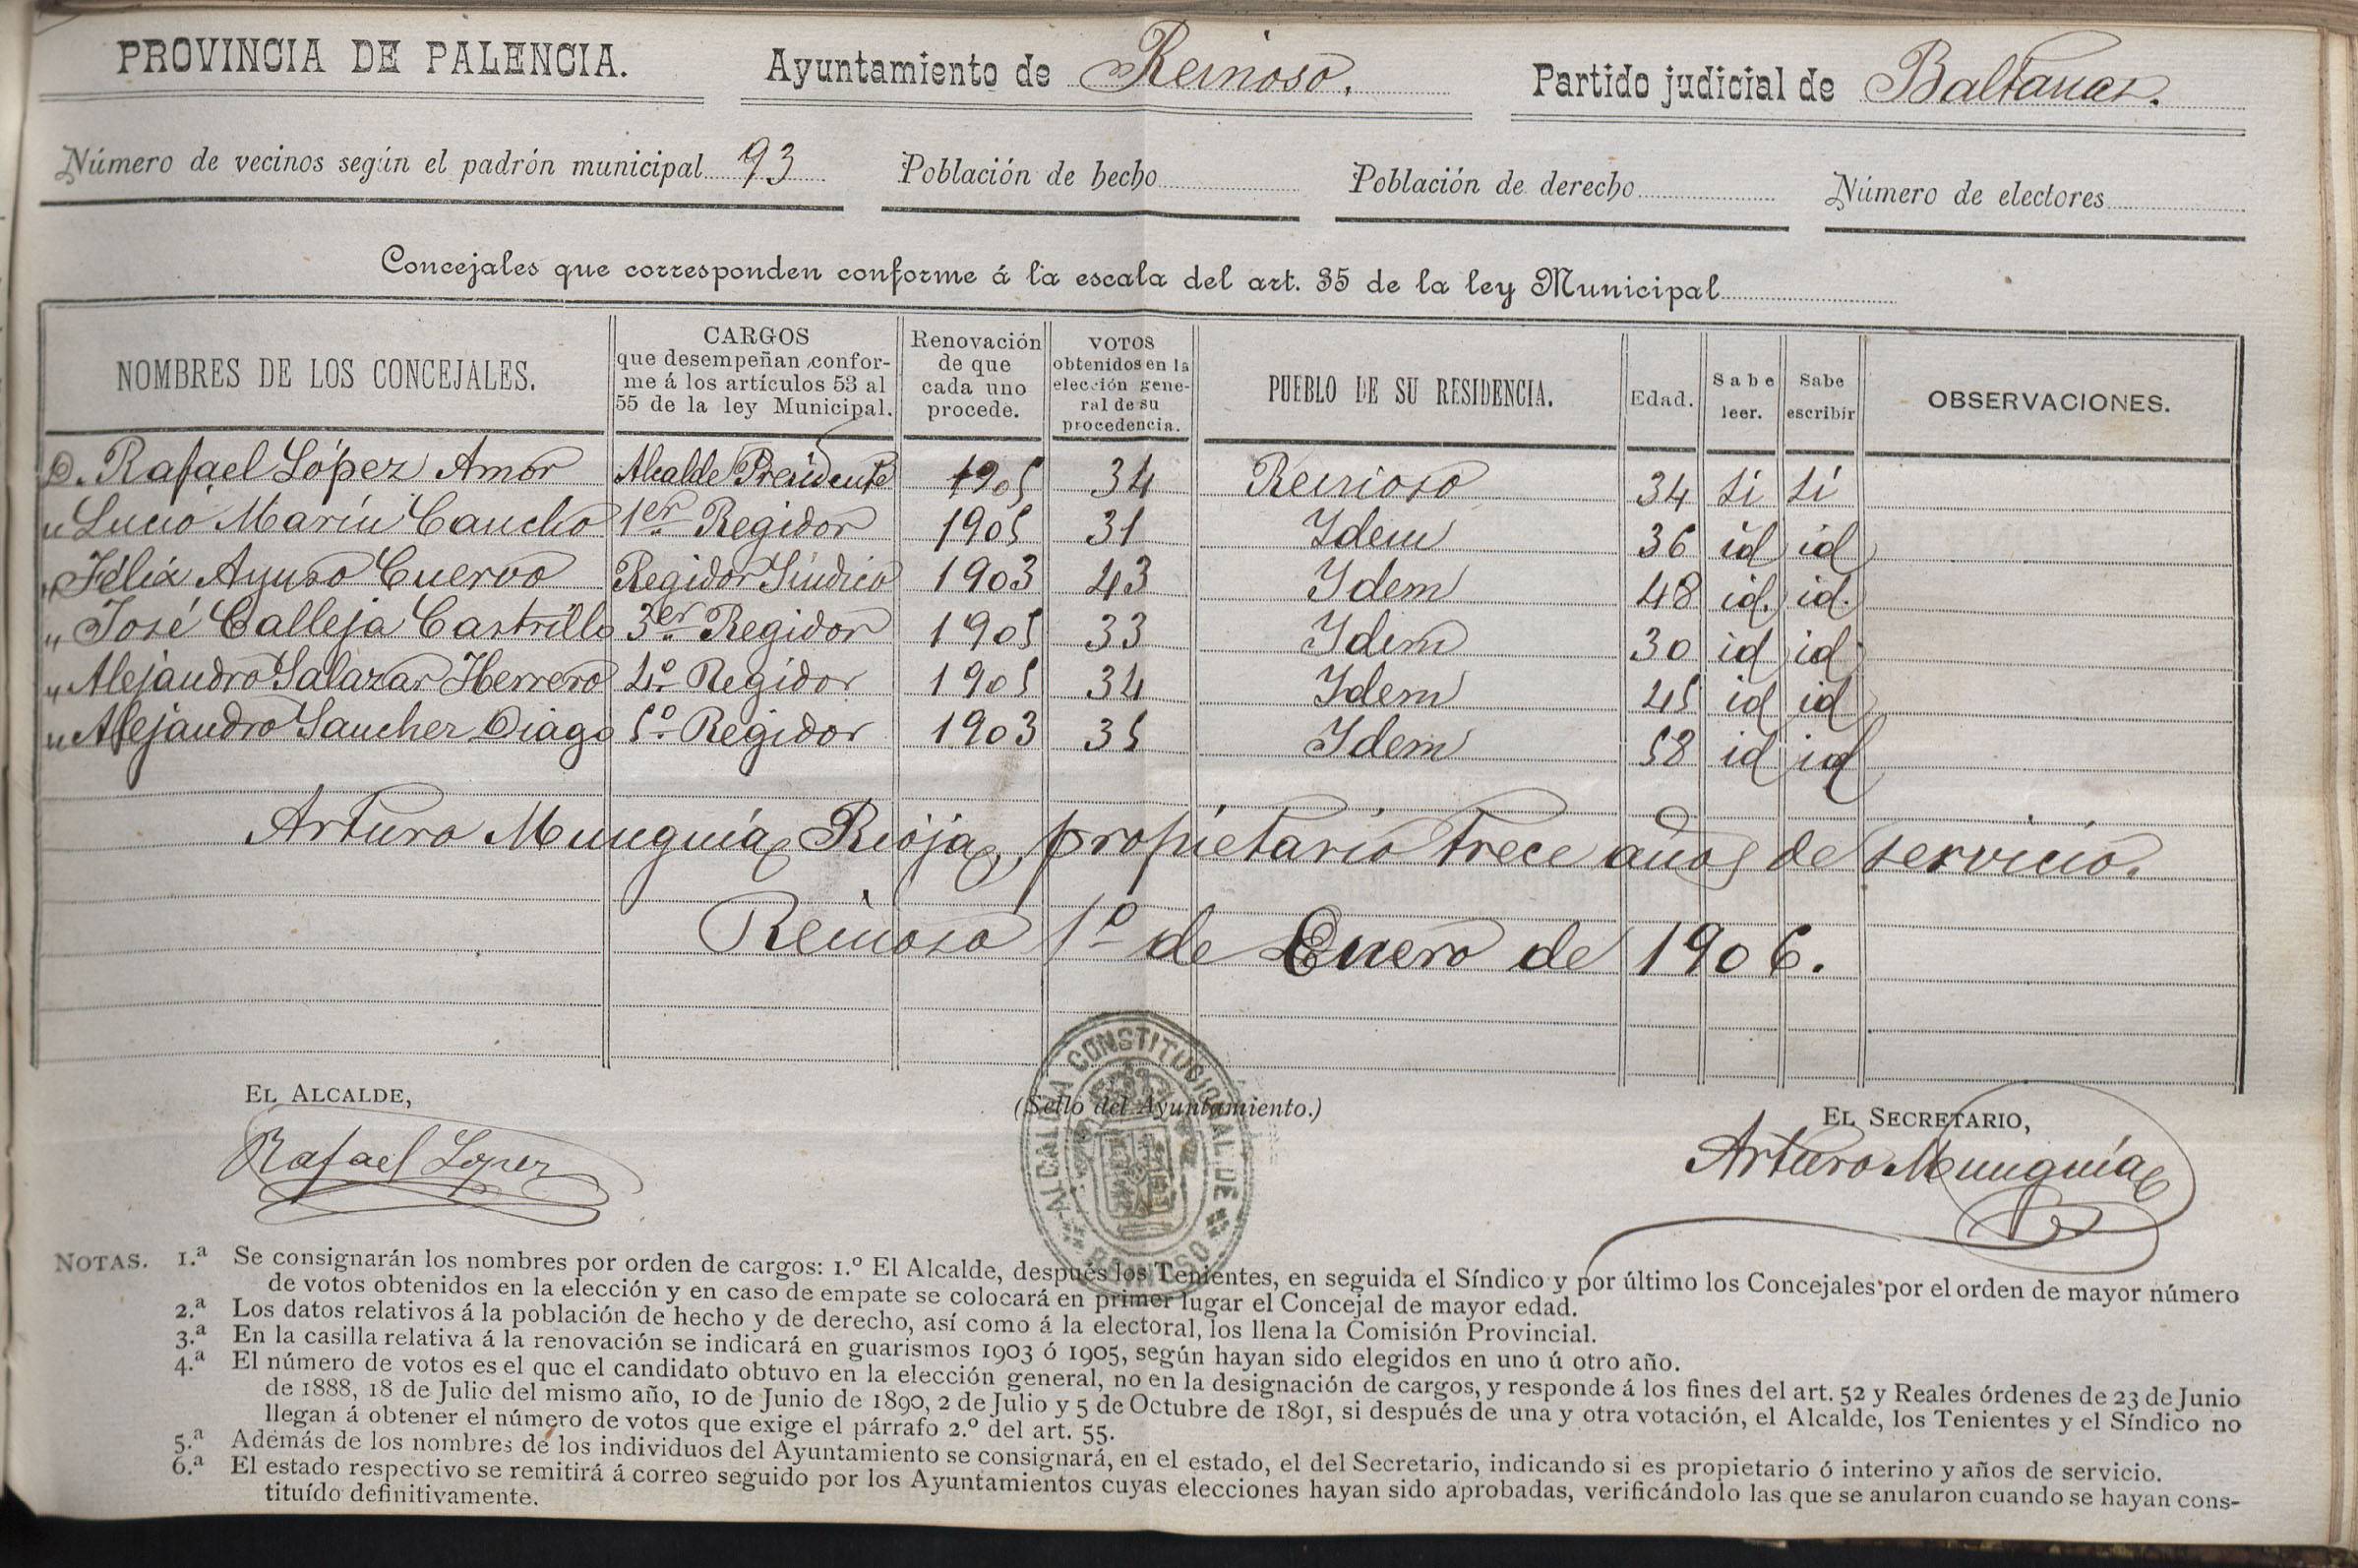 PROVINCIA DE PALENCIA. Ayuntamiento de Reinoso. Partido judicial de Baltanas.
Número de vecinos según el padrón municipal 93 Población de hecho Población de derecho Número de electores
Concejales que corresponden conforme á la escala del art. 35 de la ley Municipal
NOMBRES DE LOS CONCEJALES.
CARGOS
que desempeñan confor-
me á los artículos 53 al
55 de la ley Municipal.
Renovación
de que
cada uno
procede.
VOTOS
obtenidos en la
elección gene-
ral de su
procedencia.
PUEBLO DE SU RESIDENCIA.
Edad.
Sabe
leer.
Sabe
escribir
OBSERVACIONES.
D. Rafael López Amor Alcalde Presidente 1905 34 Reinoso 34 sí sí
" Lucio Marín Caucho 1er Regidor 1905 31 Idem 36 id id
" Félix Ayuso Cuervo Regidor Síndico 1903 43 Idem 48 id. id.
" José Calleja Castrillo 3er Regidor 1905 33 Idem 30 id id
" Alejandro Salazar Herrero 4º Regidor 1905 34 Idem 45 id id
" Alejandro Sanchez Diago 5º Regidor 1903 35 Idem 58 id id
Arturo Munguía Rioja, propietario trece años de servicio.
Reinoso 1º de Enero de 1906.
EL ALCALDE,
Rafael Lopez
(Sello del Ayuntamiento.)
ALCALDIA CONSTITUCIONAL DE
REINOSO
EL SECRETARIO,
Arturo Munguía
NOTAS. 1.ª Se consignarán los nombres por orden de cargos: 1.º El Alcalde, después los Tenientes, en seguida el Síndico y por último los Concejales por el orden de mayor número
de votos obtenidos en la elección y en caso de empate se colocará en primer lugar el Concejal de mayor edad.
2.ª Los datos relativos á la población de hecho y de derecho, así como á la electoral, los llena la Comisión Provincial.
3.ª En la casilla relativa á la renovación se indicará en guarismos 1903 ó 1905, según hayan sido elegidos en uno ú otro año.
4.ª El número de votos es el que el candidato obtuvo en la elección general, no en la designación de cargos, y responde á los fines del art. 52 y Reales órdenes de 23 de Junio
de 1888, 18 de Julio del mismo año, 10 de Junio de 1890, 2 de Julio y 5 de Octubre de 1891, si después de una y otra votación, el Alcalde, los Tenientes y el Síndico no
llegan á obtener el número de votos que exige el párrafo 2.º del art. 55.
5.ª Además de los nombres de los individuos del Ayuntamiento se consignará, en el estado, el del Secretario, indicando si es propietario ó interino y años de servicio.
6.ª El estado respectivo se remitirá á correo seguido por los Ayuntamientos cuyas elecciones hayan sido aprobadas, verificándolo las que se anularon cuando se hayan cons-
tituído definitivamente.